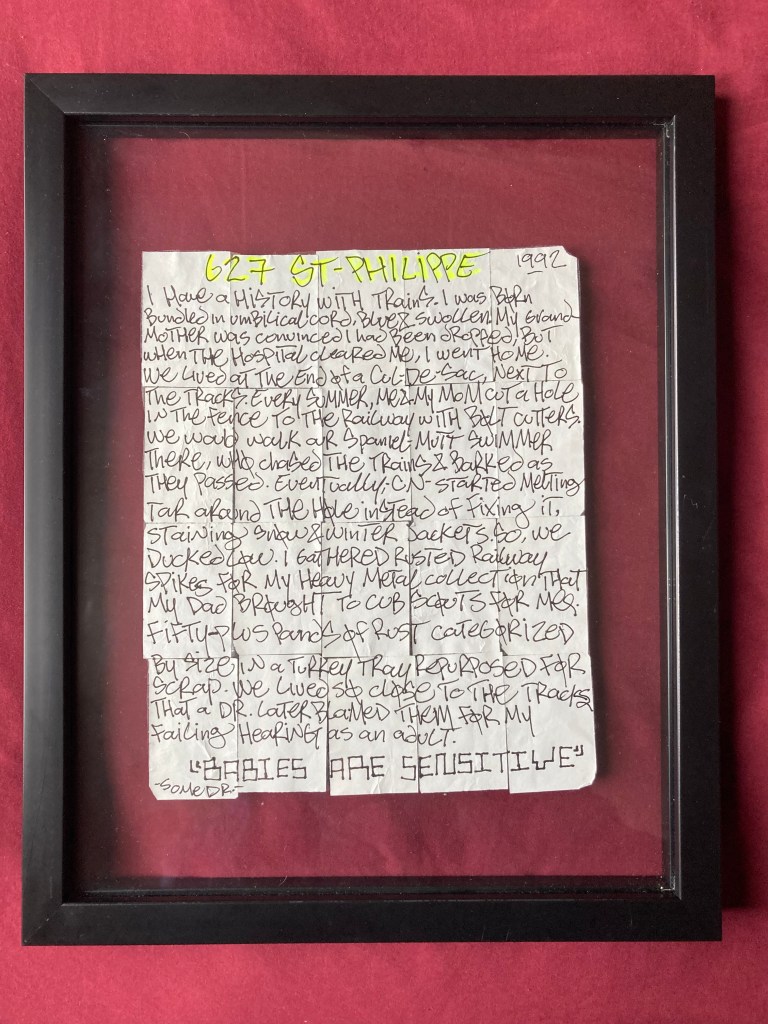 627 ST-PHILIPPE
1992
I Have a HiSTORY WiTH Trains. I was Born
Bundled in umbilical cord, Blue & swollen. My Grand
MOTHER was convinced I had Been dropped, BuT
when THE Hospital cleared Me, I went Home.
We Lived aT THE End of a Cul-De-Sac, Next To
THE Tracks. Every Summer, Me & My MoM cuT a Hole
in THE Fence To THE Railway wiTH BolT cuTTers.
We would walk our Spaniel-MuTT SWiMMER
There, who chased THE Trains & Barked as
They Passed. Eventually, CN- sTarTed MelTing
Tar around THE Hole insTead of fixing iT,
sTaining snow & winTer Jackets. So, we
Ducked Low. I GaTHered RusTed Railway
Spikes For My Heavy Metal collection THaT
My Dad BrougHT To CUB Scouts For Me.
FifTy-Plus Pounds of RusT caTegorized
By Size in a Turkey Tray RepurPosed For
Scrap. We Lived so close To THE Tracks
THaT a DR. LaTer Blamed THEM For My
Failing Hearing as an adulT.
"BABIES ARE SENSITIVE"
-SOME DR.-